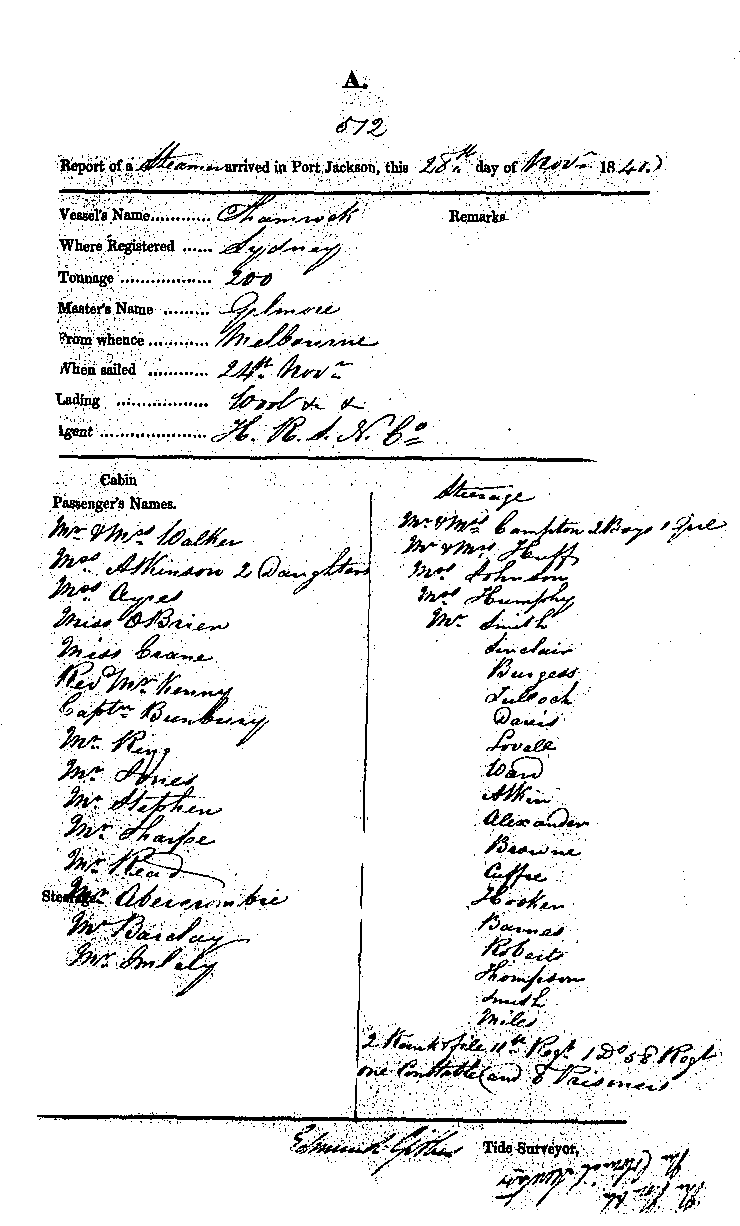 A.
512
Report of a Steamer arrived in Port Jackson, this 28th day of Novr 184
Vessel's Name............ Shamrock
Remarks
Where Registered ...... Sydney
Tonnage .................. 200
Master's Name ......... Gilmore
From whence ............ Melbourne
When sailed ............ 24th Novr
Lading .................. Wool & &
Agent ..................... H. R. S. N. Co
Cabin
Passenger's Names.
Mr & Mrs Walker
Mrs Atkinson 2 Daughters
Mrs Ayres
Miss OBrien
Miss Crane
Revd Mr Kenny
Captn Bunbury
Mr King
Mr Jones
Mr Stephen
Mr Sharpe
Mr Read
Steerage
Mr Abercrombie
Mr Barclay
Mr Imlay
Steerage
Mr & Mrs Campton 2 Boys 1 Girl
Mr & Mrs Huff
Mrs Johnson
Mrs Humphy
Mr Smith
Sinclair
Burgess
Tulloch
Davis
Lovell
Ward
Atkin
Alexander
Browne
Cuffee
Hooker
Barnes
Roberts
Thompson
Smith
Miles
2 Rank & file 11th Regt 1 Do 58 Regt
one Constable and 8 Prisoners
Edmund
Tide Surveyor,